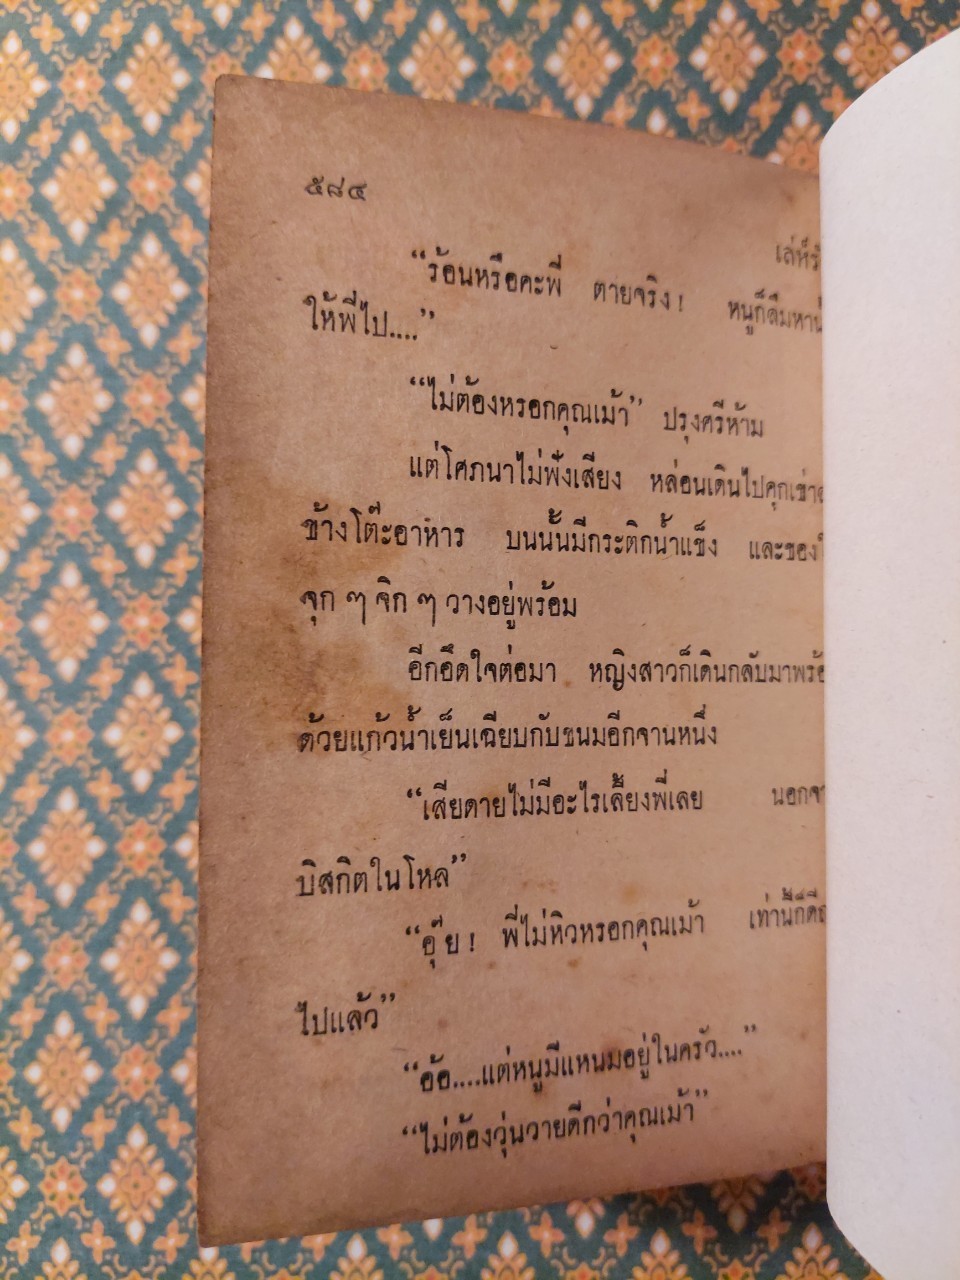 ๕๘๔
“ร้อนหรือคะพี่ ตายจริง! หนูก็ลืมหา
ให้พี่ไป....”
“ไม่ต้องหรอกคุณเม้า” ปรุงศรีห้าม
แต่โศภนาไม่ฟังเสียง หล่อนเดินไปคุกเข่า
ข้างโต๊ะอาหาร บนนั้นมีกระติกน้ำแข็ง และของ
จุก ๆ จิก ๆ วางอยู่พร้อม
อีกอึดใจต่อมา หญิงสาวก็เดินกลับมา
ด้วยแก้วน้ำเย็นเฉียบกับขนมอีกจานหนึ่ง
“เสียดายไม่มีอะไรเลี้ยงพี่เลย
บิสกิตในโหล”
“อุ๊ย! พี่ไม่หิวหรอกคุณเม้า เท่านี้ก็
ไปแล้ว”
“อ้อ....แต่หนูมีแหนมอยู่ในครัว....”
“ไม่ต้องวุ่นวายดีกว่าคุณเม้า”